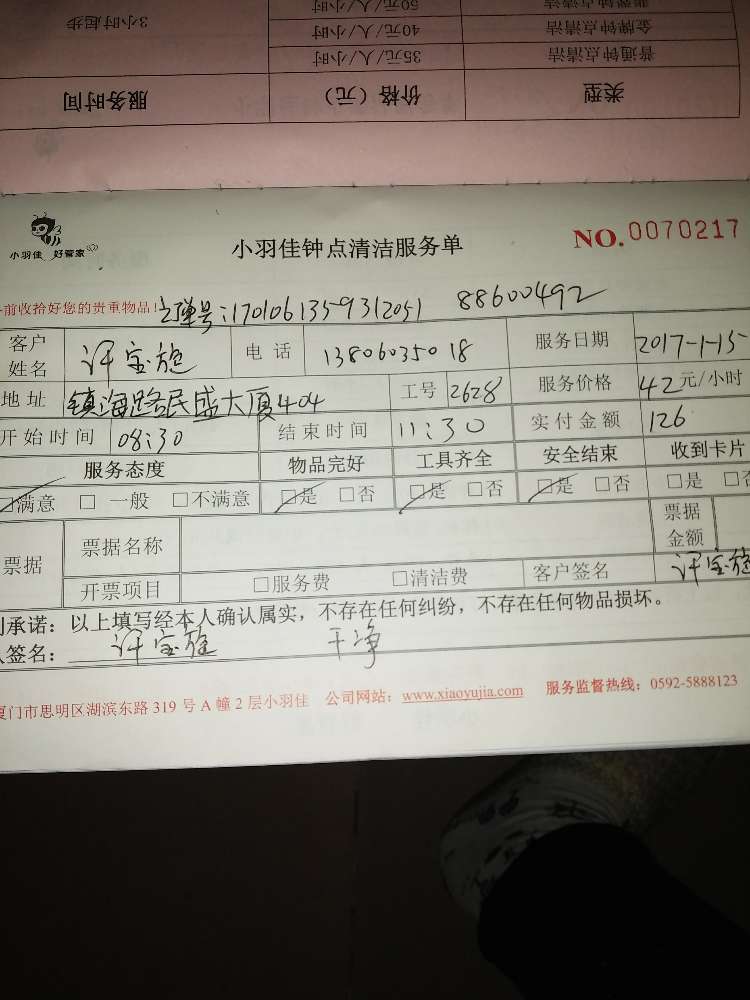 3小时起步 50元/人/小时
40元/人/小时 金牌钟点清洁
35元/人/小时 普通钟点清洁
服务时间 价格（元） 类型
小羽佳 好管家
小羽佳钟点清洁服务单
NO.0070217
前收拾好您的贵重物品！ 单号:1701061359312051 88600492
客户姓名 许宝施 电话 13806035018 服务日期 2017-1-15
地址 镇海路民盛大厦404 工号 2628 服务价格 42元/小时
开始时间 08:30 结束时间 11:30 实付金额 126
服务态度 物品完好 工具齐全 安全结束 收到卡片
☑满意 □一般 □不满意 ☑是 □否 ☑是 □否 ☑是 □否 □是 □否
票据 票据名称 票据金额
开票项目 □服务费 □清洁费 客户签名 许宝施
承诺：以上填写经本人确认属实，不存在任何纠纷，不存在任何物品损坏。
签名：许宝施 干净
厦门市思明区湖滨东路319号A幢2层小羽佳 公司网站：www.xiaoyujia.com 服务监督热线：0592-5888123